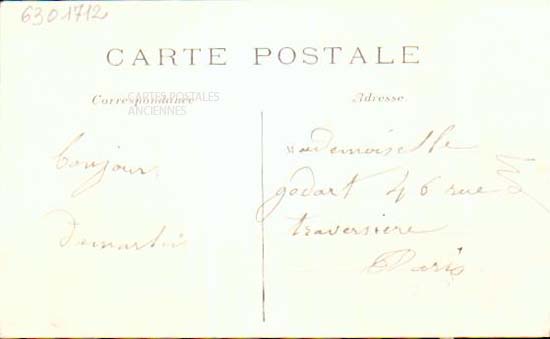 6301712
CARTE POSTALE
Correspondance
Adresse
CARTES POSTALES
ANCIENNES
bonjour
Demartin
Mademoiselle
godart 46 rue
traversiere
Paris